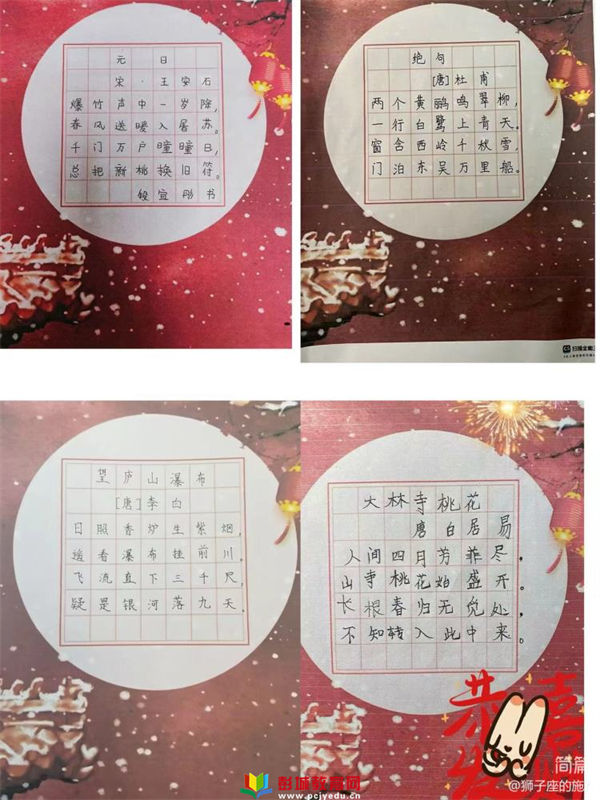 元日
宋·王安石
爆竹声中一岁除，
春风送暖入屠苏。
千门万户曈曈日，
总把新桃换旧符。
宜彤书
绝句
[唐]杜甫
两个黄鹂鸣翠柳，
一行白鹭上青天。
窗含西岭千秋雪，
门泊东吴万里船。
扫描全能
望庐山瀑布
[唐]李白
日照香炉生紫烟，
遥看瀑布挂前川。
飞流直下三千尺，
疑是银河落九天。
大林寺桃花
唐 白居易
人间四月芳菲尽，
山寺桃花始盛开。
长恨春归无觅处，
不知转入此中来。
恭喜发
简篇
@狮子座的施
彭城教育网
www.pcjyedu.cn